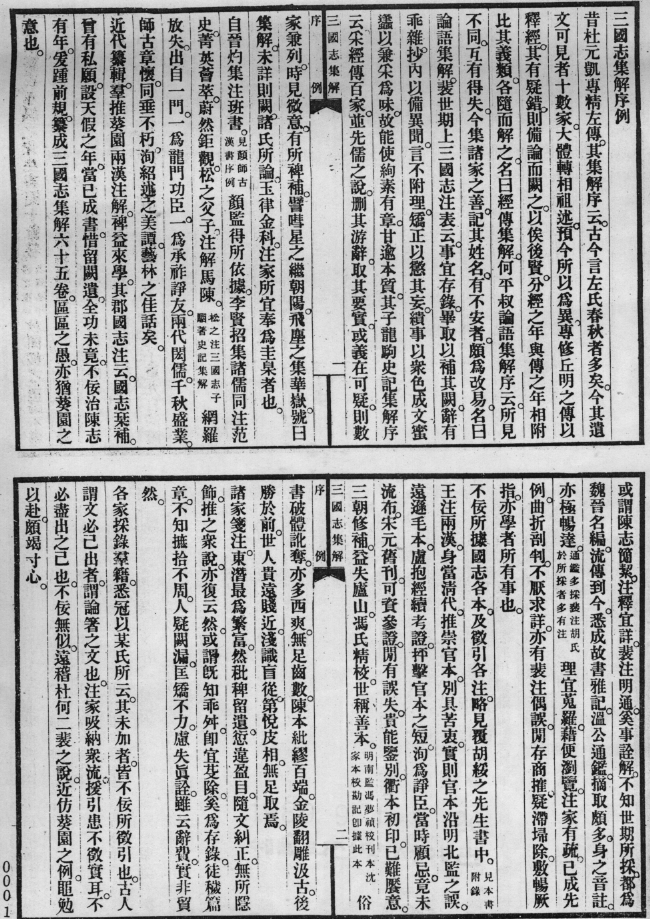 三國志集解序例
昔杜元凱專精左傳其集解序云古今言左氏春秋者多矣今其遺
文可見者十數家大體轉相祖述預今所以爲異專修丘明之傳以
釋經其有疑錯則備論而闕之以俟後賢分經之年與傳之年相附
比其義類各隨而解之名曰經傳集解何平叔論語集解序云所見
不同互有得失今集諸家之善記其姓名有不安者頗爲改易名曰
論語集解裴世期上三國志注表云事宜存錄畢取以補其闕辭有
乖雜抄內以備異聞言不附理矯正以懲其妄繢事以衆色成文蜜
蠭以兼采爲味故能使絢素有章甘逾本質其子龍駒史記集解序
云采經傳百家並先儒之說刪其游辭取其要實或義在可疑則數
三國志集解
序例
一
家兼列時見微意有所裨補譬嘒星之繼朝陽飛塵之集華嶽號曰
集解未詳則闕諸氏所論玉律金科注家所宜奉爲圭臬者也
自晉灼集注班書見顏師古漢書序例顏監得所依據李賢招集諸儒同注范
史菁英薈萃蔚然鉅觀松之父子注解馬陳松之注三國志子駰著史記集解網羅
放失出自一門一爲龍門功臣一爲承祚諍友兩代閎儒千秋盛業
師古章懷同垂不朽洵紹述之美譚藝林之佳話矣
近代纂輯羣推葵園兩漢注解裨益來學其郡國志注云國志栞補
曾有私願設天假之年當已成書惜留闕遺全功未竟不佞治陳志
有年爰踵前規纂成三國志集解六十五卷區區之愚亦猶葵園之
意也
或謂陳志簡絜注釋宜詳裴注明通奚事詮解不知世期所採都爲
魏晉名編流傳到今悉成故書雅記溫公通鑑摘取頗多身之音註
亦極暢達通鑑多採裴注胡氏於所採者多有注理宜蒐羅藉便瀏覽注家有疏已成先
例曲折剖判不厭求詳亦有裴注偶誤閒存商搉疑滯埽除敷暢厥
指亦學者所有事也
不佞所據國志各本及徵引各注略見覆胡綏之先生書中見本書附錄
王注兩漢身當淸代推崇官本別具苦衷實則官本沿明北監之誤
遠遜毛本盧抱經續考證抨擊官本之短洵爲諍臣當時顧忌竟未
流布宋元舊刊可資參證閒有誤失貴能鑒別衢本初印已難饜意
三朝修補益失廬山馮氏精校世稱善本明南監馮夢禎校刊本沈家本校勘記卽據此本俗
三國志集解
序例
二
書破體訛奪亦多西爽無足齒數陳本紕繆百端金陵翻雕汲古後
勝於前世人貴遠賤近淺識盲從第悅皮相無足取焉
諸家箋注東潛最爲繁富然秕稗留遺愆違盈目隨文糾正無所隱
飾推之衆說亦復云然或謂旣知乖舛卽宜芟除奚爲存錄徒穢篇
章不知摭拾不周人疑闕漏匡矯不力慮失眞詮雖云辭費實非貿
然
各家採錄羣籍悉冠以某氏所云其未加者皆不佞所徵引也古人
謂文必己出者謂論著之文也注家吸納衆流援引患不徵實耳不
必盡出之己也不佞無似遠稽杜何二裴之說近仿葵園之例黽勉
以赴頗竭寸心
0001